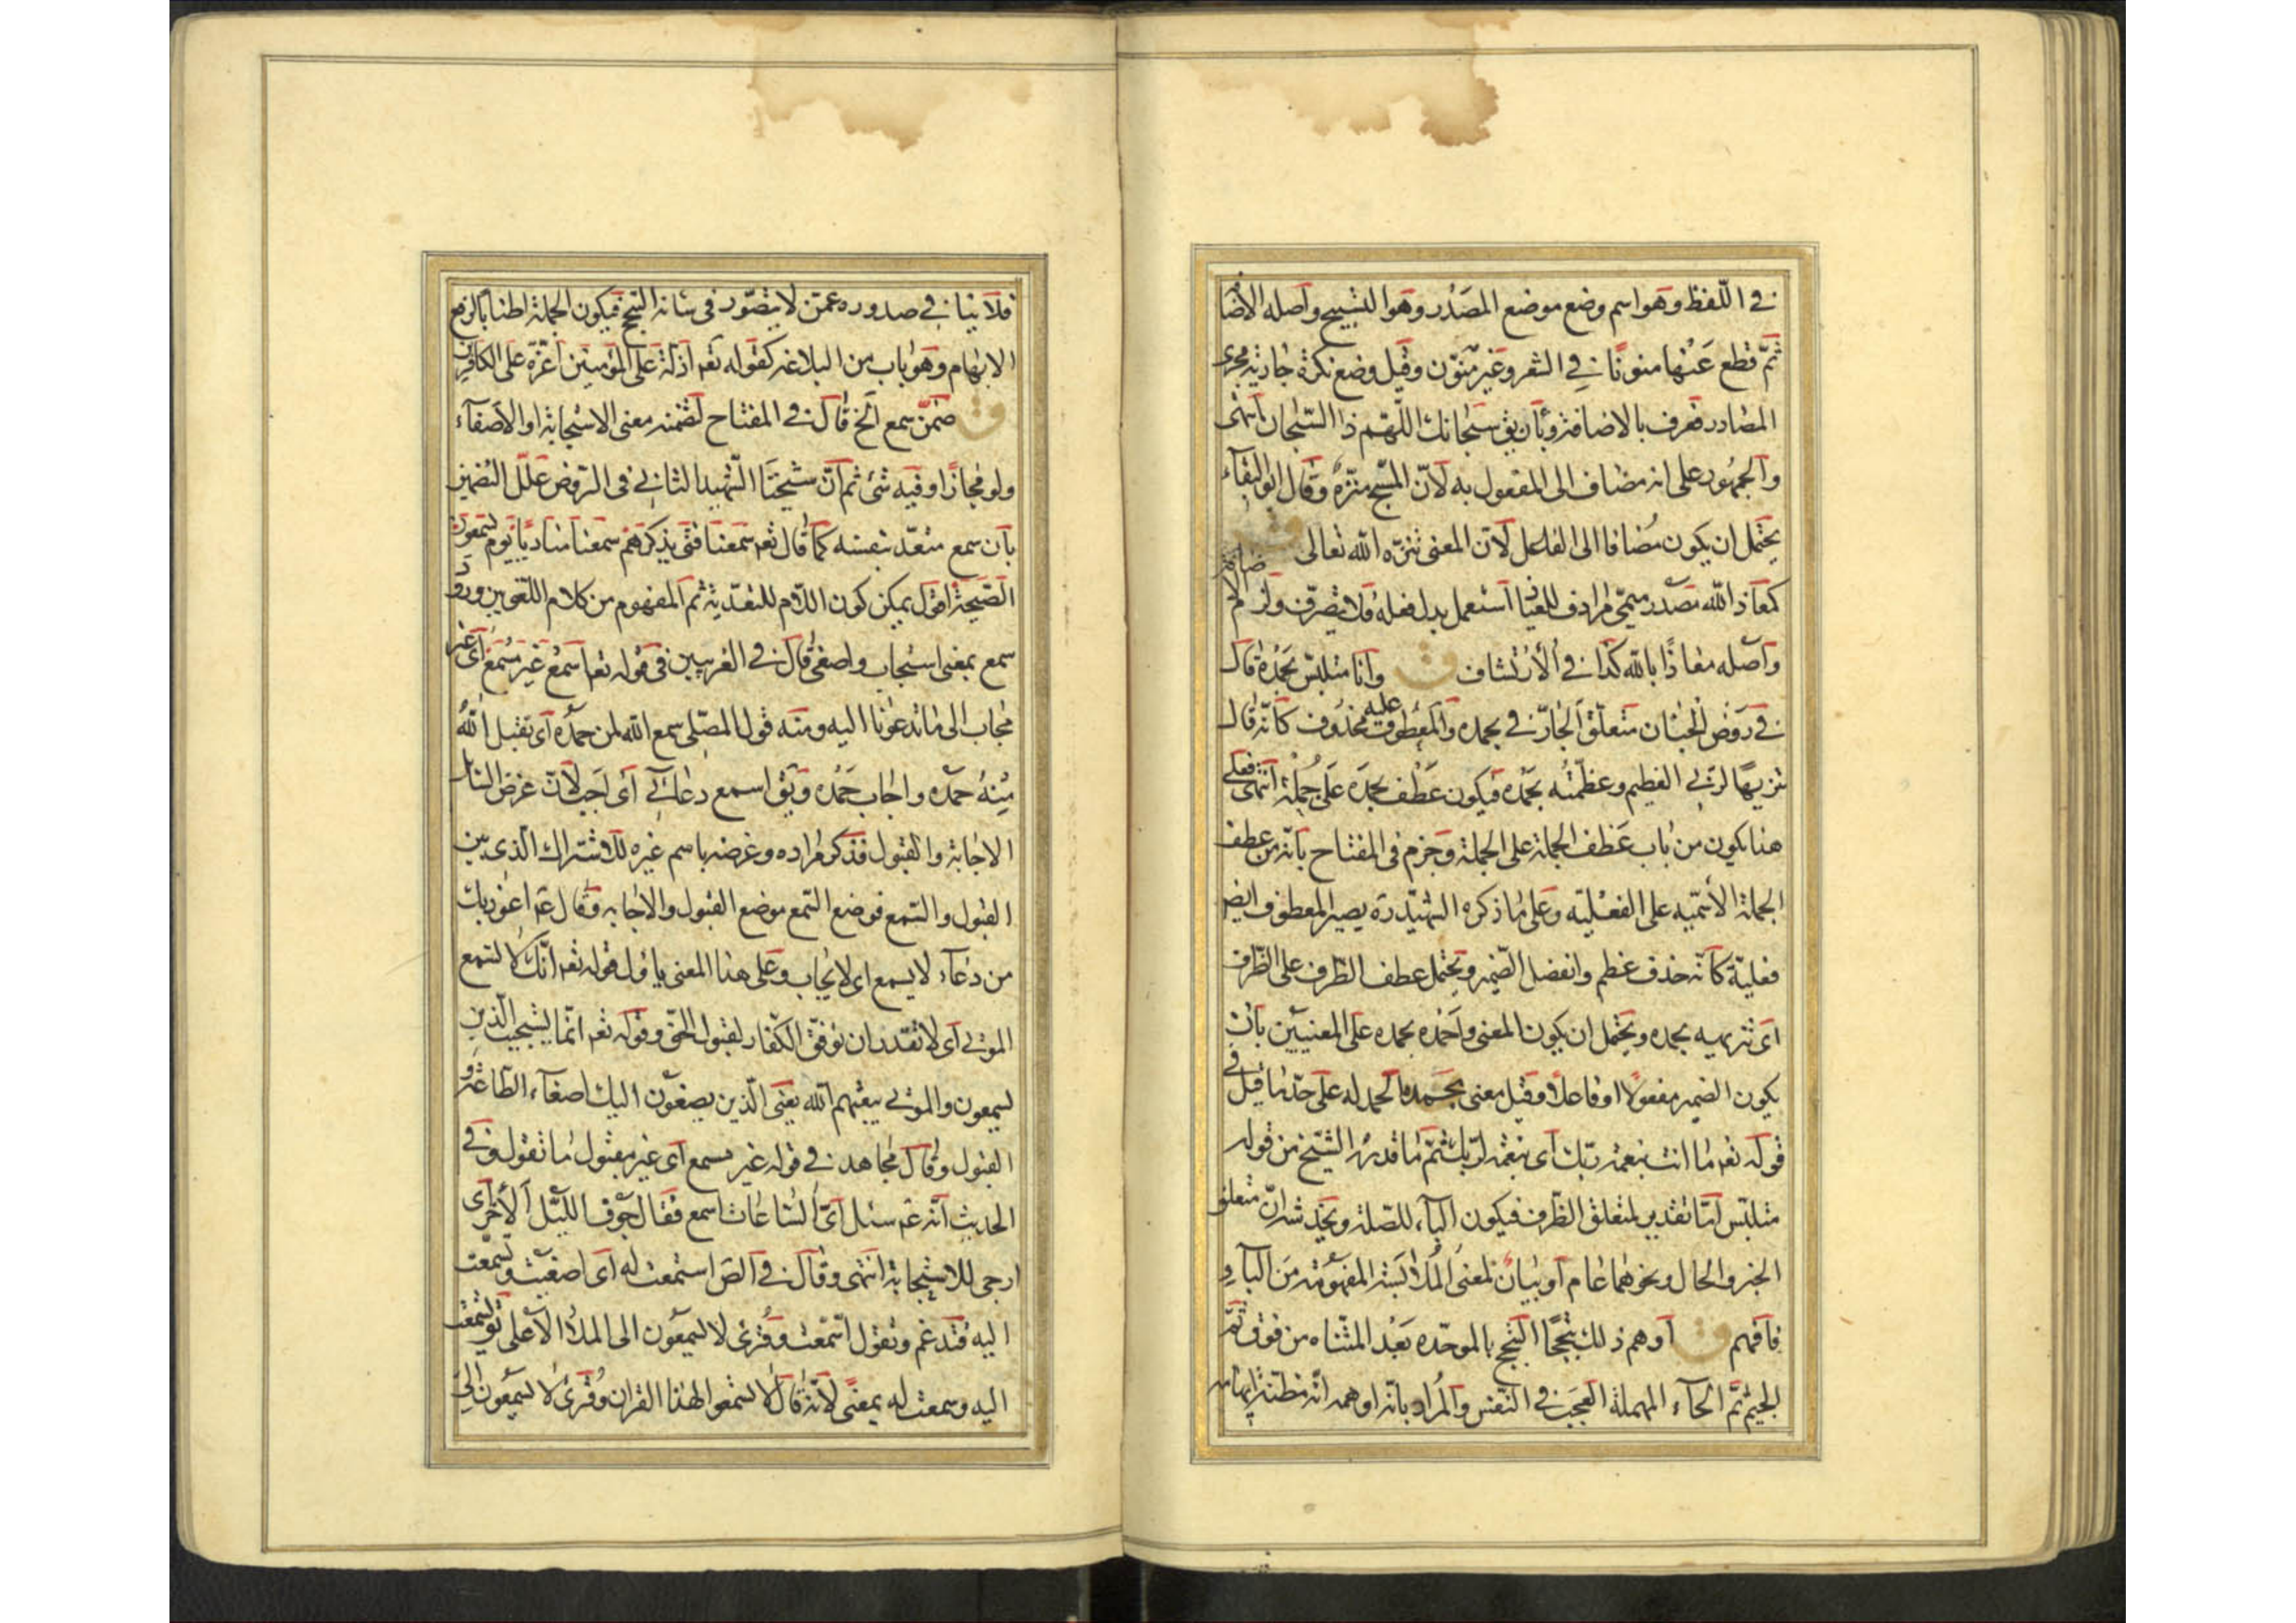 في اللّفظ وهو اسم وضع موضع المصدر وهو التسبيح واصله الاضا
ثمّ قطع عنها منونًا في الشعر وغير منوّن وقيل وضع نكرة جارية مجرى
المصادر فعرف بالاضافة وبأن يق سبحانك اللّهم ذا السّبحان انتهى
والجمهور على انه مضاف الى المفعول به لانّ المسبّح منزّه وقال ابو البقاء
يحتمل ان يكون مضافا الى الفاعل لان المعنى تنزه الله تعالى
كمعاذ الله مصدر ميميّ مرادف للعياذ استعمل بدل فعله فلا يتصرّف ولزم الا
واصله معاذًا بالله كذا في الارتشاف ق وانا متلبّس بحمده قال
في روض الجنان متعلّق الجارّ في بحمده والمعطوف عليه محذوف كانّه قال
تنزيهًا لربي العظيم وعظّمته بحمده فيكون عطف بحمده على جملة انتهى فعلى
هذا يكون من باب عطف الجملة على الجملة وجزم في المفتاح بانّه من عطف
الجملة الاسميّه على الفعليّه وعلى ما ذكره الشهيد ره يصير المعطوف ايض
فعليّة كانّه حذف عظم وانفصل الضمير ويحتمل عطف الظّرف على الظّرف
اى تنزيهيه بحمده ويحتمل ان يكون المعنى واحمده بحمده على المعنيين بان
يكون الضمير مفعولًا او فاعلًا وقيل معنى بحمده الحمد له على حدّ ما قيل في
قوله تعه ما انت بنعمة ربّك اى بنعمة لربّك ثمّ ما قدره الشيخ من قوله
متلبّس امّا تقدير لمتعلق الظّرف فيكون الباء للصّلة ويخدشه انّ متعلق
الخبر والحال ونحوهما عام او بيان لمعنى الملابسة المفهومة من الباء و
فافهم ق او هم ذلك بتبجّحًا التبجّح بالموحّده بعد المثناه من فوق ثمّ
الجيم ثمّ الحاء المهملة العجب في النّفس والمراد بانّه اوهمه انّه مظنّة ايهامه
فلا ينافي صدوره عمّن لا يتصوّر في شانه التبجّح فيكون الجملة اطنابًا لرفع
الابهام وهو باب من البلاغه كقوله تعه اذلّة على المؤمنين اعزّة على الكافرين
ق ضمّن سمع الخ قال في المفتاح لتضمنه معنى الاستجابة او الاصغاء
ولو مجازًا وفيه شئ ثم انّ شيخنا الشّهيد الثاني في الروض علّل التضمين
بان سمع متعدّ بنفسه كما قال تعه سمعنا فتى يذكرهم سمعنا مناديًا يوم يسمعون
الصّيحة اقول يمكن كون اللام للتعدية ثم المفهوم من كلام اللغويين ورود
سمع بمعنى استجاب واصغى قال في الغريبين في قوله تعه اسمع غير مسمع اى غير
مجاب الى ما تدعونا اليه ومنه قول المصلّى سمع الله لمن حمده اى تقبل الله
منه حمده واجاب حمده ويق اسمع دعائي اى اجب لان غرض السائل
الاجابة والقبول فذكر مراده وغرضه باسم غيره للاشتراك الذى بين
القبول والسّمع فوضع السّمع موضع القبول والاجابه وقال عم اعوذ بك
من دعاء لا يسمع اى لا يجاب وعلى هذا المعنى ياول قوله تعه انّك لا تسمع
الموتى اى لا تقدر ان توفّق الكفّار لقبول الحق وقوله تعه انّما يستجيب الّذين
يسمعون والموتى يبعثهم الله يعنى الّذين يصغون اليك اصغاء الطّاعة و
القبول وقال مجاهد في قوله غير مسمع اى غير مقبول ما تقول وفي
الحديث انّه عم سئل اىّ السّاعات اسمع فقال جوف الليّل الآخر اى
ارجى للاستجابة انتهى وقال في الص استمعت له اى اصغيت وتسمّعت
اليه فتدغم وتقول اسّمّعت وقرئ لا يسمعون الى الملأ الاعلى يق تسمعت
اليه وسمعت له بمعنًى لانّه قال لا تسمعوا لهذا القران وقرئ لا يسمعون الى